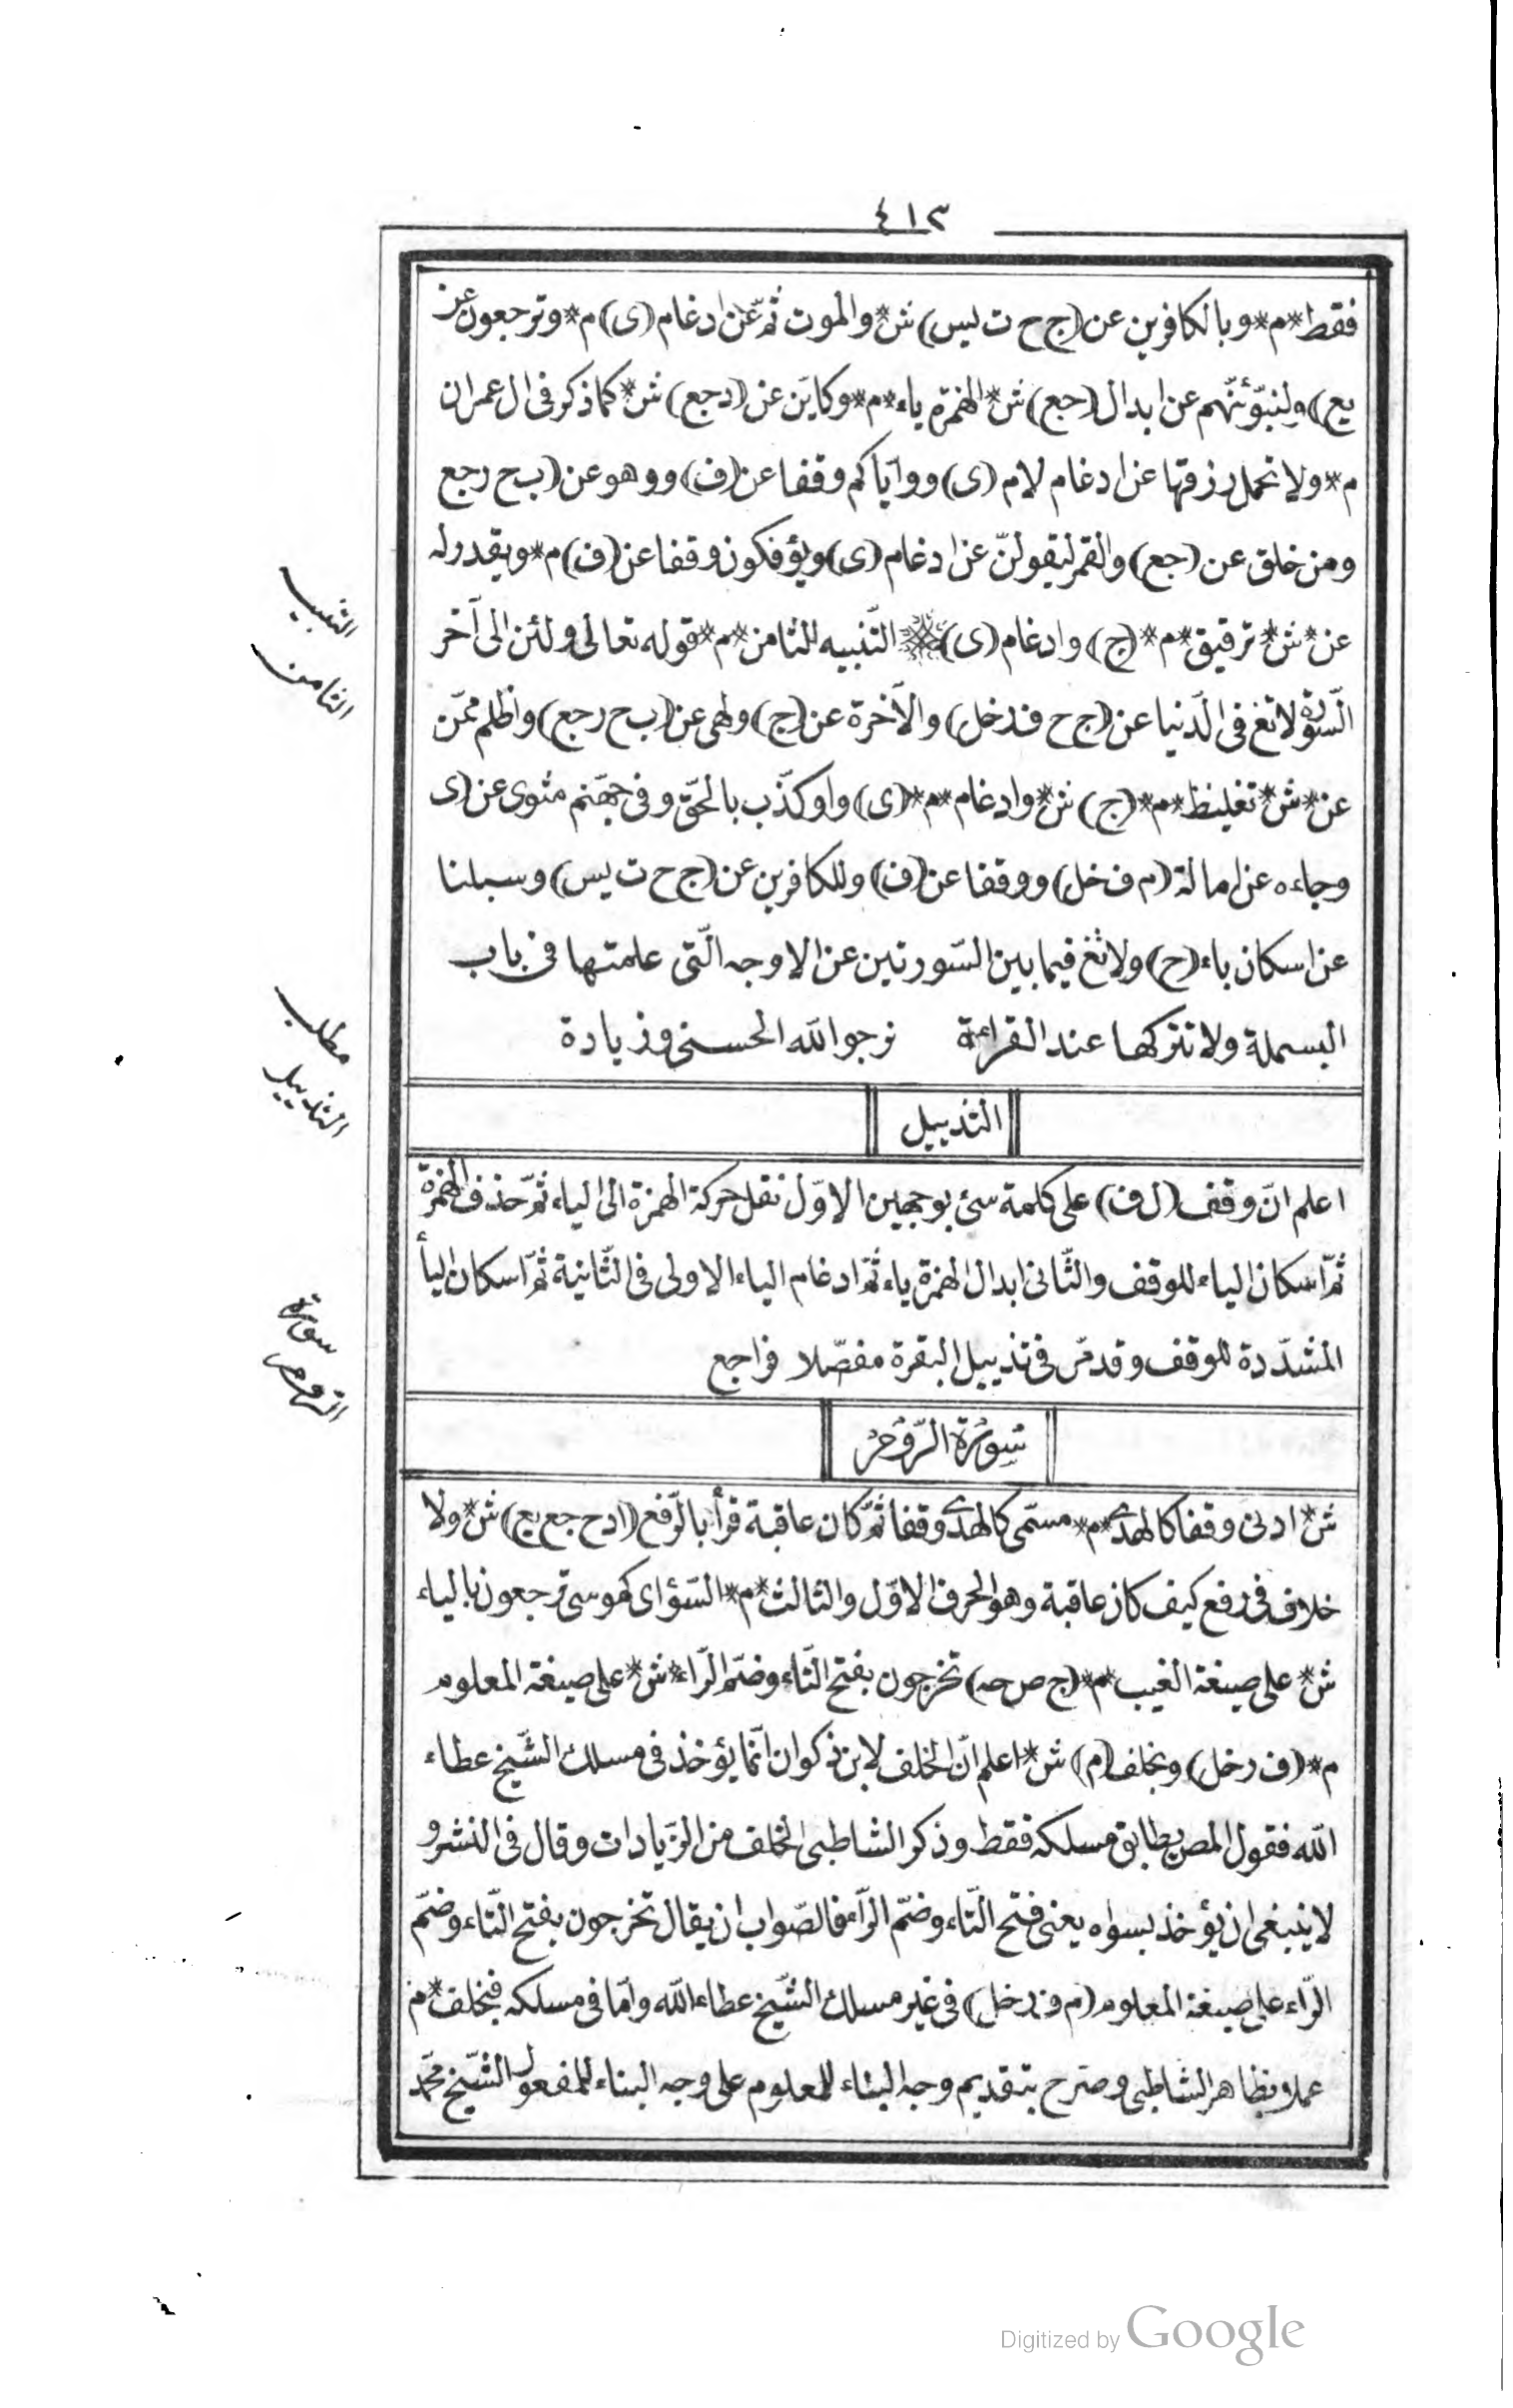 ٤١٣
فقط*م*وبالكافرين عن (ج ح ت يس) ش*والموت ثمّ عن ادغام (ى) م*وترجعون عن
يع) ولنبوّئنّهم عن ابدال (جع) ش*الهمزة ياء*م*وكايّن عن (د جع) ش*كما ذكر فى ال عمران
م*ولا تحمل رزقها عن ادغام لام (ى) وواياكم وقفا عن (ف) ووهو عن (ب ح ر جع
ومن خلق عن (جع) والقمر ليقولنّ عن ادغام (ى) ويؤفكون وقفا عن (ف) م*ويقدر له
عن*ش*ترقيق*م*(ج) وادغام (ى) التّنبيه الثامن*م*قوله تعالى ولئن الى آخر
السّورة لا تغ فى الدّنيا عن (ج ح ف ر خل) والآخرة عن (ج) ولهى عن (ب ح ر جع) واظلم ممّن
عن*ش*تغليظ*م*(ج) ش*وادغام*م*(ى) واو كذّب بالحقّ وفى جهّنم مثوى عن (ى
وجاءه عن امالة (م ف خل) ووقفا عن (ف) وللكافرين عن (ج ح ت يس) وسبلنا
عن اسكان باء (ح) ولا تغ فيما بين السّورتين عن الاوجه الّتى علمتها فى باب
البسملة ولا تتركها عند القراءة نرجو الله الحسنى وزيادة
التذييل
اعلم انّ وقف (ل ف) على كلمة سئ بوجهين الاوّل نقل حركة الهمزة الى الياء ثمّ حذف الهمزة
ثمّ اسكان الياء للوقف والثّانى ابدال الهمزة ياء ثمّ ادغام الياء الاولى فى الثّانية ثمّ اسكان اليأ
المشدّدة للوقف وقد مرّ فى تذييل البقرة مفصّلا فراجع
سورة الرّوم
ش*ادنى وقفا كالهدى*م*مسمّى كالهدى وقفا ثمّ كان عاقبة قرأ بالرّفع (ا د ح جع يع) ش*ولا
خلاف فى رفع كيف كان عاقبة وهو الحرف الاوّل والثالث*م*السّؤاى كموسى ترجعون بالياء
ش*على صيغة الغيب*م*(ج ص حه) تخرجون بفتح التّاء وضمّ الرّاء*ش*على صيغة المعلوم
م*(ف ر خل) وبخلف (م) ش*اعلم انّ الخلف لابن ذكوان انّما يؤخذ فى مسلك الشّيخ عطاء
الله فقول المص يطابق مسلكه فقط وذكر الشاطبى الخلف من الزّيادات وقال فى النشر و
لا ينبغى ان يؤخذ بسواه يعنى فتح التّاء وضمّ الرّاء فالصّواب ان يقال تخرجون بفتح التّاء وضمّ
الرّاء على صيغة المعلوم (م ف ر خل) فى غير مسلك الشّيخ عطاء الله وامّا فى مسلكه فبخلف*م
عملا بظاهر الشاطبى وصرّح بتقديم وجه البناء للمعلوم على وجه البناء للمفعول الشّيخ محمّد
التنبيه
الثامن
مطلب
التذييل
سورة
الروم
Digitized by Google